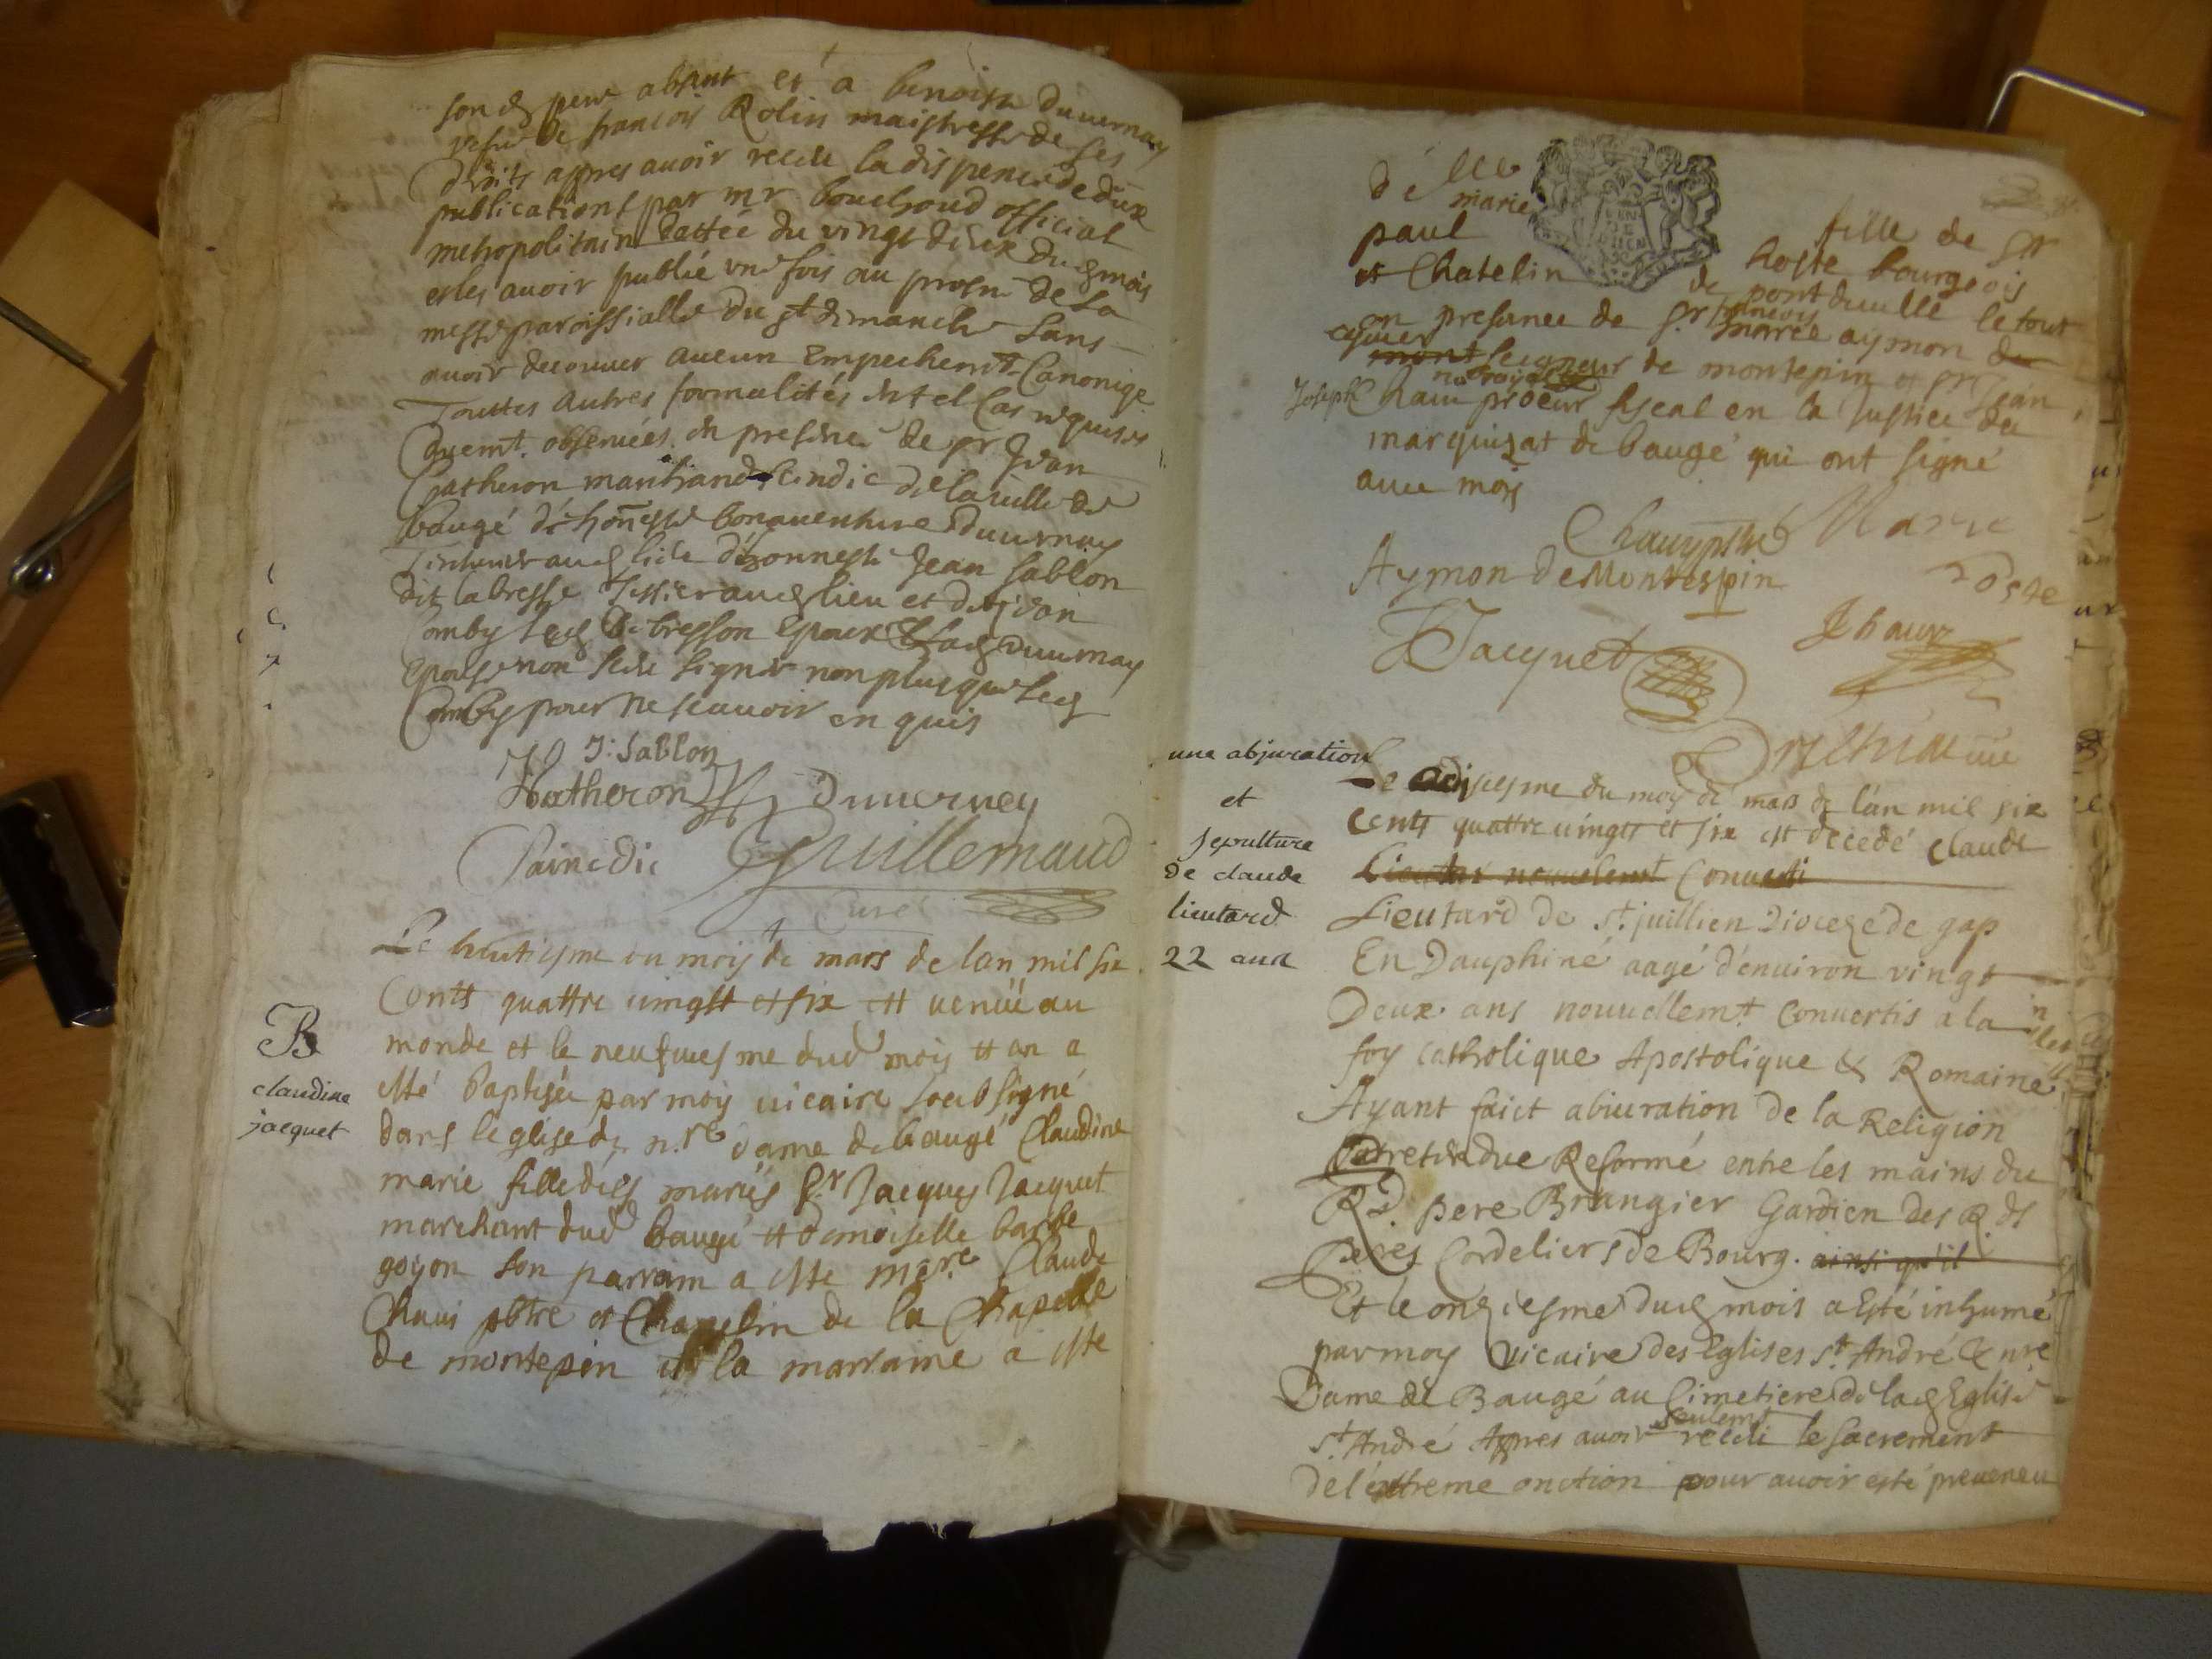 son d pere absent et a benoiste duvernay
vefve de francois Rolin maistresse de ses
droits appres avoir receu la dispence de deux
publications par mr bouchoud official
metropolitain dattée du vingt deux dud mois
et les avoir publié une fois au prosne de la
messe paroissialle du dt dimanche sans
avoir decouver aucun Empechemt Canonige
Touttes autres formalités en tel cas requises
duemt. observées en presence de sr Jean
Catheron marchand scindic de la ville de
baugé d'honneste bonaventure duvernay
aud lieu d'honneste Jean Sablon
dit la bresse Tissier aud lieu et de Jean
Comby led Epoux & lad Duvernay
Epouse non sceu signer non plus que led
Comby pour ne scavoir en quis
J: Sablon
Hatheron Duverney
Sainedie Guillemaud
curé
Le huitiesme du mois de mars de lan mil six
Cents quattre vingtt et six est venüe au
monde et le neufviesme dud mois et an a
esté Baptisée par moy vicaire soubsigné
dans leglise de n.re dame de baugé Claudine
marie fille dés mariés sr Jacques Jacquet
marchant dud Baugé et demoiselle barbe
goyon son parrain a este mere Claude
Chaui pbtre et Chapelin de la Chapelle
de montepin et la marraine a este
B
claudine
jacquet
délle
marie
paul fille de sr
et Chatelin de hoste bourgeois
de pontdevelle le tout
en presence de sr francois marie aymon de
escuier mont seigneur de montepin et sr Jean
Joseph Chaui procur fiscal en la Justice du
marquisat de baugé qui ont signé
avec moy
Chauy pstre Marie
Aymon de Montespin
hoste
Jacquet Chauy
une abjuration
et
sepulture
de claude
lieutard
22 ans
Le disiesme du moys de mars de l'an mil six
cents quattre vingts et six est décedé claude
Lieutar nouvelemt Converti
Lieutard de st. juillien Diocezé de gap
En Dauphiné aagé d'environ vingt
Deux ans nouvellemt. convertis a la
foy catholique Apostolique & Romaine
Ayant faict abiuration de la Religion
pretendue Reformé entre les mains du
Rd. pere Brangier Gardien des Rds
peres Cordeliers de Bourg. ainsi qu'il
Et le onziesme dud mois a Esté inhumé
par moy Vicaire des Eglises st. André & nre
Dame de Baugé au Cimetiere de lad Eglise
st. André Appres avoir seulemt receu le sacrement
de l'extreme onction pour avoir esté prevenu